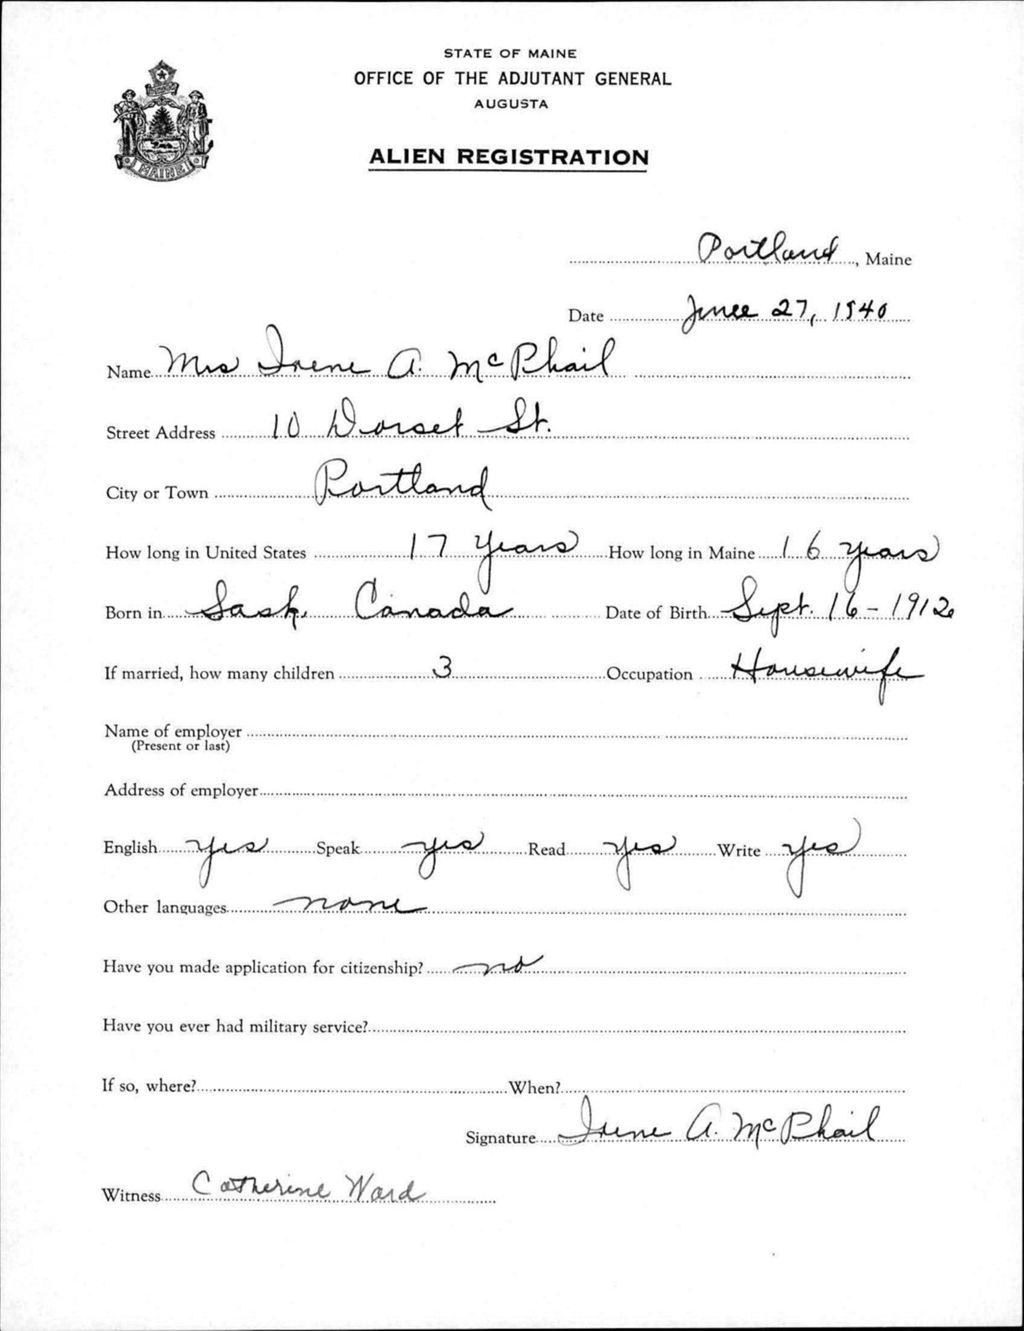 STATE OF MAINE
OFFICE OF THE ADJUTANT GENERAL
AUGUSTA
ALIEN REGISTRATION
MAINE
Portland, Maine
Date June 27, 1940
Name Mrs Irene A. McPhail
Street Address 10 Dorset St.
City or Town Portland
How long in United States 17 years How long in Maine 16 years
Born in Sask, Canada Date of Birth Sept. 16-1912
If married, how many children 3 Occupation Housewife
Name of employer
(Present or last)
Address of employer
English yes Speak yes Read yes Write yes
Other languages none
Have you made application for citizenship? no
Have you ever had military service?
If so, where? When?
Signature Irene A. McPhail
Witness Catherine Ward